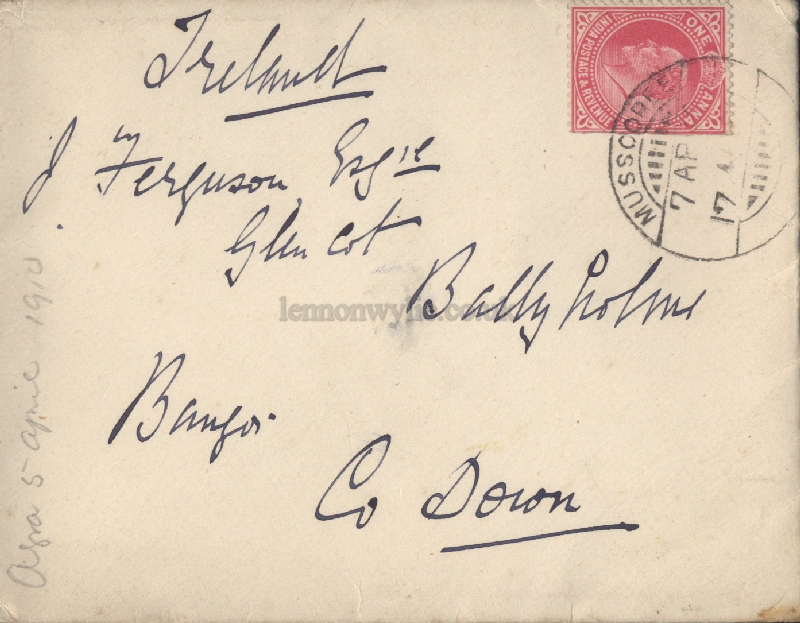 Ireland
J. Ferguson Esqre
Glen Cot
Ballyholme
Bangor
Co Down
Agra 5 April 1910
INDIA POSTAGE & REVENUE
ONE ANNA
MUSSOORIE
7 AP
17
lennonwylie.co.uk